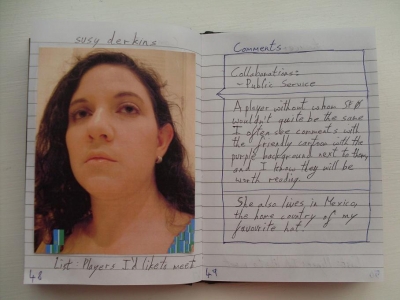 susy derkins
List: Players I'd like to meet
48
Comments
Collaborations:
~ Public Service
A player without whom SF0
wouldn't quite be the same
I often see comments with
the friendly cartoon with the
purple background next to them,
and I know they will be
worth reading.
She also lives in Mexico,
the home country of my
favourite hat!
49